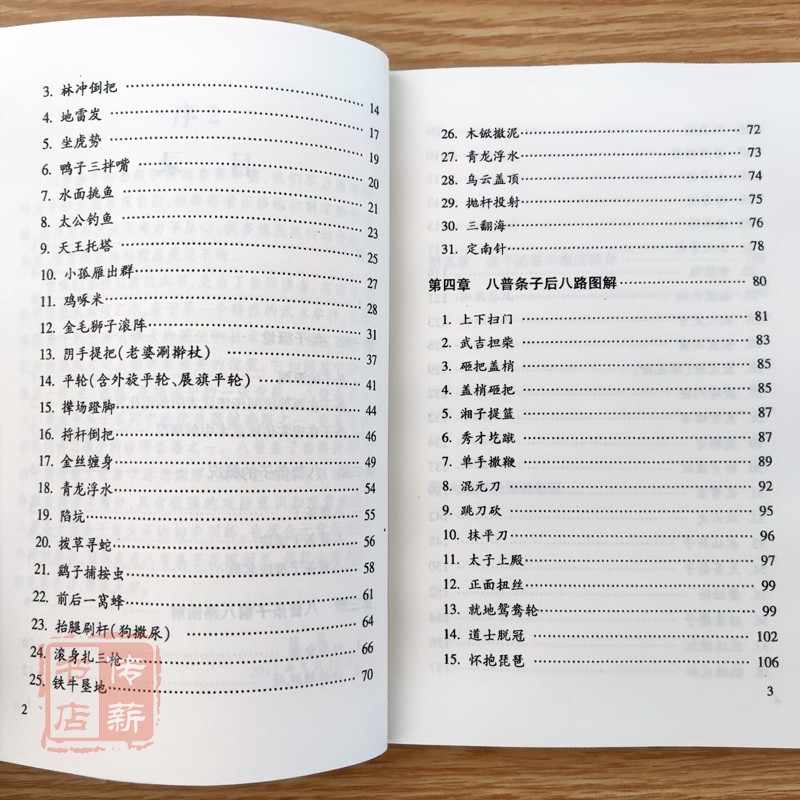 3. 林冲倒把 …… 14
4. 地雷发 …… 17
5. 坐虎势 …… 19
6. 鸭子三拌嘴 …… 20
7. 水面挑鱼 …… 21
8. 太公钓鱼 …… 23
9. 天王托塔 …… 25
10. 小孤雁出群 …… 27
11. 鸡啄米 …… 28
12. 金毛狮子滚阵 …… 31
13. 阴手提把(老婆涮擀杖) …… 37
14. 平轮(含外旋平轮、展旗平轮) …… 41
15. 撵场蹬脚 …… 44
16. 将杆倒把 …… 46
17. 金丝缠身 …… 49
18. 青龙浮水 …… 54
19. 陷坑 …… 55
20. 拨草寻蛇 …… 56
21. 鹞子捕按虫 …… 58
22. 前后一窝蜂 …… 61
23. 抬腿刷杆(狗撒尿) …… 64
24. 滚身扎三枪 …… 66
25. 铁牛垦地 …… 70
2
传薪书店
26. 木锨撤泥 …… 72
27. 青龙浮水 …… 73
28. 乌云盖顶 …… 74
29. 抛杆投射 …… 75
30. 三翻海 …… 76
31. 定南针 …… 78
第四章 八普条子后八路图解 …… 80
1. 上下扫门 …… 81
2. 武吉担柴 …… 83
3. 砸把盖梢 …… 85
4. 盖梢砸把 …… 85
5. 湘子提篮 …… 87
6. 秀才圪蹴 …… 87
7. 单手撒鞭 …… 89
8. 混元刀 …… 92
9. 跳刀砍 …… 95
10. 抹平刀 …… 96
11. 太子上殿 …… 97
12. 正面扭丝 …… 99
13. 就地鸳鸯轮 …… 99
14. 道士脱冠 …… 102
15. 怀抱琵琶 …… 106
3